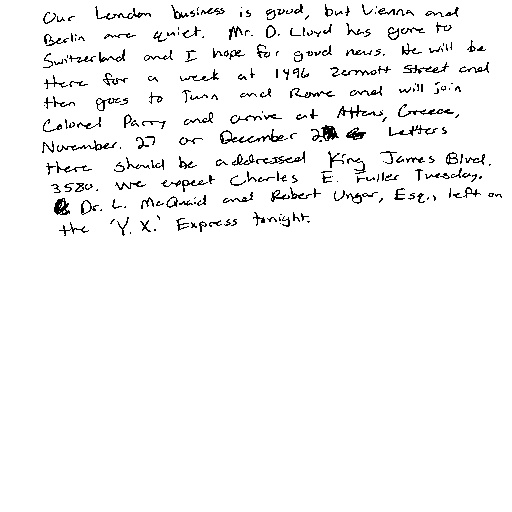 Our London business is good, but Vienna and
Berlin are quiet. Mr. D. Lloyd has gone to
Switzerland and I hope for good news. He will be
there for a week at 1496 Zermott Street and
then goes to Turin and Rome and will join
Colonel Parry and arrive at Athens, Greece,
November. 27 or December 2 Letters
there should be addressed King James Blvd.
3580. We expect Charles E. Fuller Tuesday.
Dr. L. McQuaid and Robert Ungar, Esq., left on
the 'Y. X.' Express tonight.